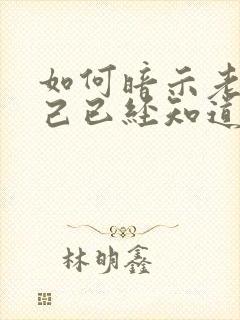 如何暗示老
己已经知道
林明鑫